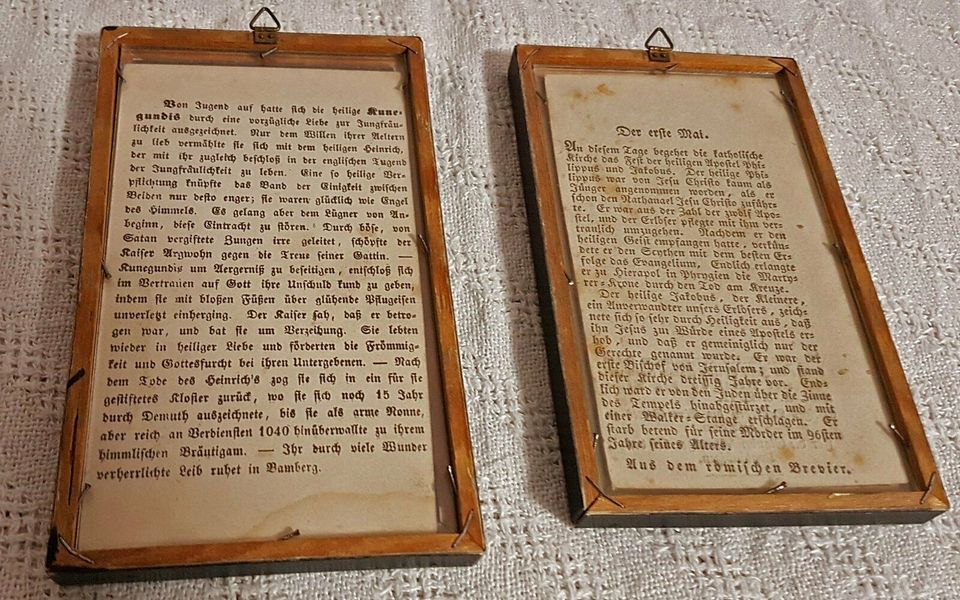 Von Jugend auf hatte sich die heilige Kune-
gundis durch eine vorzügliche Liebe zur Jungfräu-
lichkeit ausgezeichnet. Nur dem Willen ihrer Aeltern
zu lieb vermählte sie sich mit dem heiligen Heinrich,
der mit ihr zugleich beschloß in der englischen Tugend
der Jungfräulichkeit zu leben. Eine so heilige Ver-
pflichtung knüpfte das Band der Einigkeit zwischen
Beiden nur desto enger; sie waren glücklich wie Engel
des Himmels. Es gelang aber dem Lügner von An-
beginn, diese Eintracht zu stören. Durch böse, von
Satan vergiftete Zungen irre geleitet, schöpfte der
Kaiser Argwohn gegen die Treue seiner Gattin. —
Kunegundis um Aergerniß zu beseitigen, entschloß sich
im Vertrauen auf Gott ihre Unschuld kund zu geben,
indem sie mit bloßen Füßen über glühende Pflugeisen
unverletzt einherging. Der Kaiser sah, daß er betro-
gen war, und bat sie um Verzeihung. Sie lebten
wieder in heiliger Liebe und förderten die Frömmig-
keit und Gottesfurcht bei ihren Untergebenen. — Nach
dem Tode des Heinrich's zog sie sich in ein für sie
gestiftetes Kloster zurück, wo sie sich noch 15 Jahr
durch Demuth auszeichnete, bis sie als arme Nonne,
aber reich an Verdiensten 1040 hinüberwallte zu ihrem
himmlischen Bräutigam. — Ihr durch viele Wunder
verherrlichte Leib ruhet in Bamberg.
Der erste Mai.
An diesem Tage begehet die katholische
Kirche das Fest der heiligen Apostel Phi-
lippus und Jakobus. Der heilige Phi-
lippus war von Jesu Christo kaum als
Jünger angenommen worden, als er
schon den Nathanael Jesu Christo zuführ-
te. Er war aus der Zahl der zwölf Apo-
stel, und der Erlöser pflegte mit ihm ver-
traulich umzugehen. Nachdem er den
heiligen Geist empfangen hatte, verkün-
dete er den Scythen mit dem besten Er-
folge das Evangelium, Endlich erlangte
er zu Hierapol in Phrygien die Marty-
rer-Krone durch den Tod am Kreuze.
Der heilige Jakobus, der Kleinere,
ein Anverwandter unsers Erlösers, zeich-
nete sich so sehr durch Heiligkeit aus, daß
ihn Jesus zur Würde eines Apostels er-
hob, und daß er gemeiniglich nur der
Gerechte genannt wurde. Er war der
erste Bischof von Jerusalem; und stand
dieser Kirche dreissig Jahre vor. End-
lich ward er von den Juden über die Zinne
des Tempels hinabgestürzet, und mit
einer Walker-Stange erschlagen. Er
starb betend für seine Mörder im 96sten
Jahre seines Alters.
Aus dem römischen Brevier.